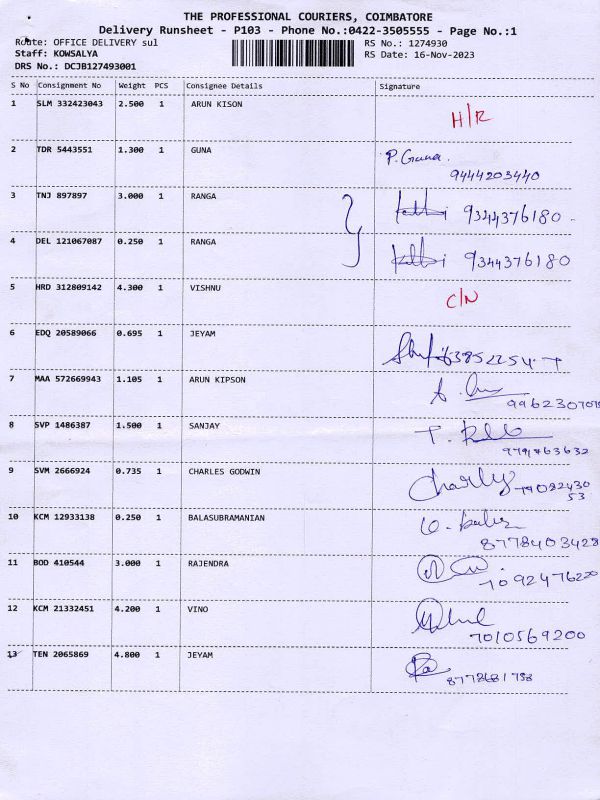 THE PROFESSIONAL COURIERS, COIMBATORE
Delivery Runsheet - P103 - Phone No.:0422-3505555 - Page No.:1
Route: OFFICE DELIVERY sul RS No.: 1274930
Staff: KOWSALYA RS Date: 16-Nov-2023
DRS No.: DCJB127493001
S No Consignment No Weight PCS Consignee Details Signature
1 SLM 332423043 2.500 1 ARUN KISON
H/R
2 TDR 5443551 1.300 1 GUNA P. Guna.
9444203440
3 TNJ 897897 3.000 1 RANGA 9344376180
4 DEL 121067087 0.250 1 RANGA 9344376180
5 HRD 312809142 4.300 1 VISHNU C/N
6 EDQ 20589066 0.695 1 JEYAM
7 MAA 572669943 1.105 1 ARUN KIPSON
8 SVP 1486387 1.500 1 SANJAY
9 SVM 2666924 0.735 1 CHARLES GODWIN
Charly
10 KCM 12933138 0.250 1 BALASUBRAMANIAN
8778403428
11 BOD 410544 3.000 1 RAJENDRA
7092476220
12 KCM 21332451 4.200 1 VINO
7010569200
13 TEN 2065869 4.800 1 JEYAM